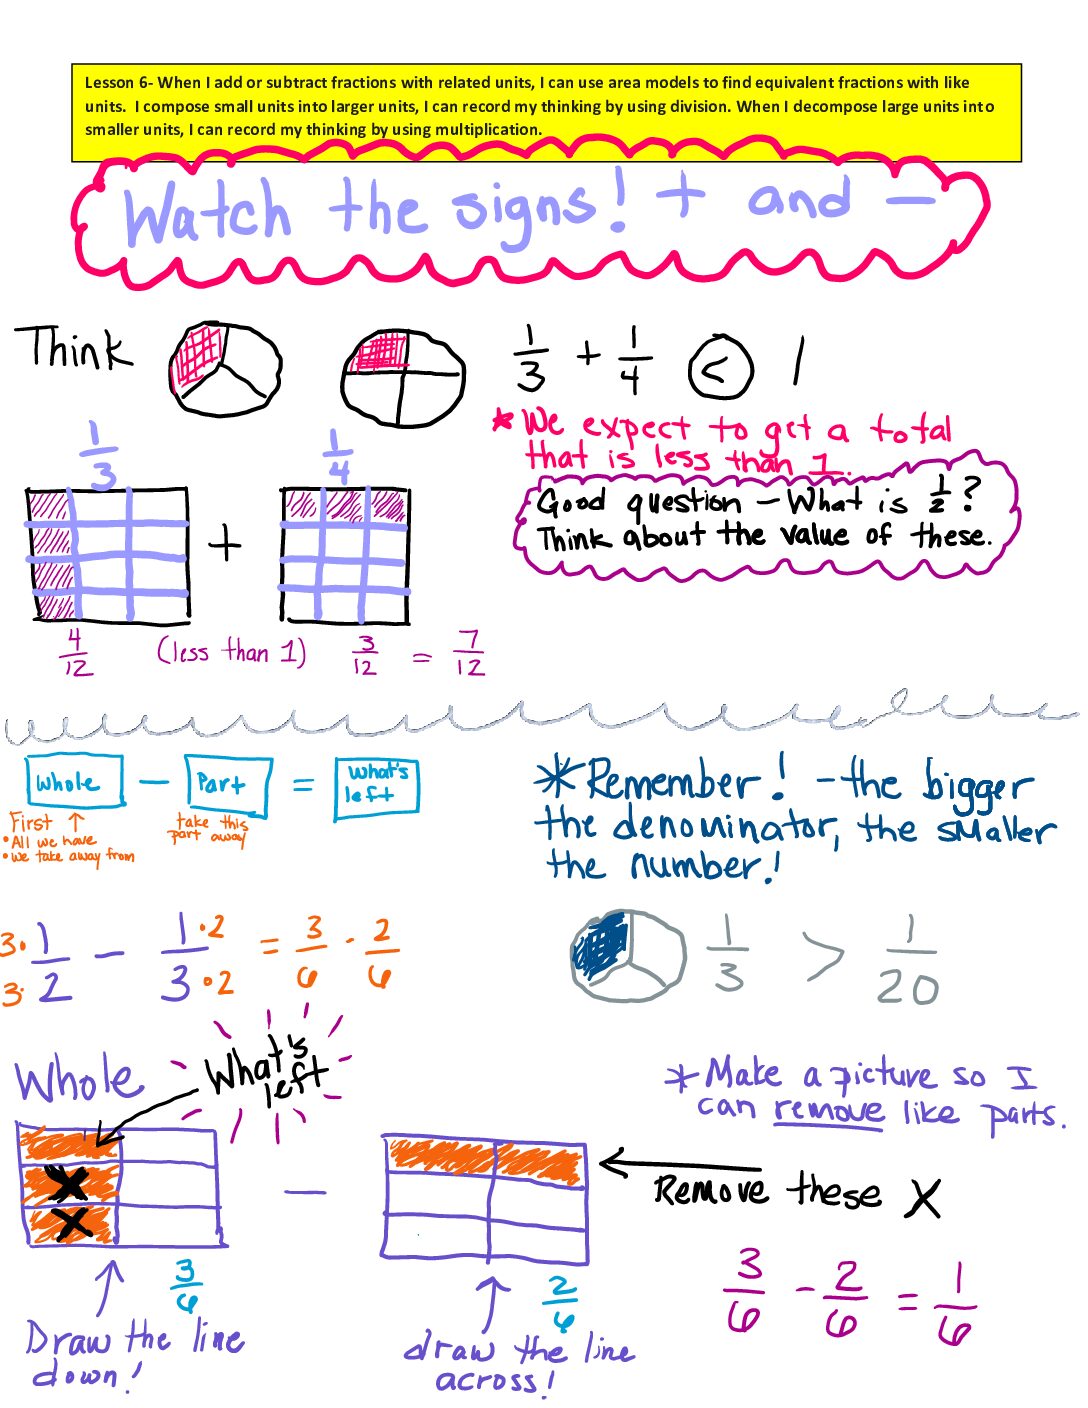 Lesson 6- When I add or subtract fractions with related units, I can use area models to find equivalent fractions with like
units.  I compose small units into larger units, I can record my thinking by using division. When I decompose large units into
smaller units, I can record my thinking by using multiplication.
Watch the signs! + and −
Think 1/3 + 1/4 < 1
* We expect to get a total
that is less than 1.
1/3 1/4
Good question – What is 1/2?
Think about the value of these.
+
4/12 (less than 1) 3/12 = 7/12
Whole − Part = What's left
First ↑
• All we have
• we take away from
take this
part away
* Remember! - the bigger
the denominator, the smaller
the number!
3· 1/2 3· − 1/3 ·2 ·2 = 3/6 - 2/6
1/3 > 1/20
Whole
What's
left
* Make a picture so I
can remove like parts.
X
X
−
Remove these X
3/6
2/6
3/6 - 2/6 = 1/6
Draw the line
down!
draw the line
across!